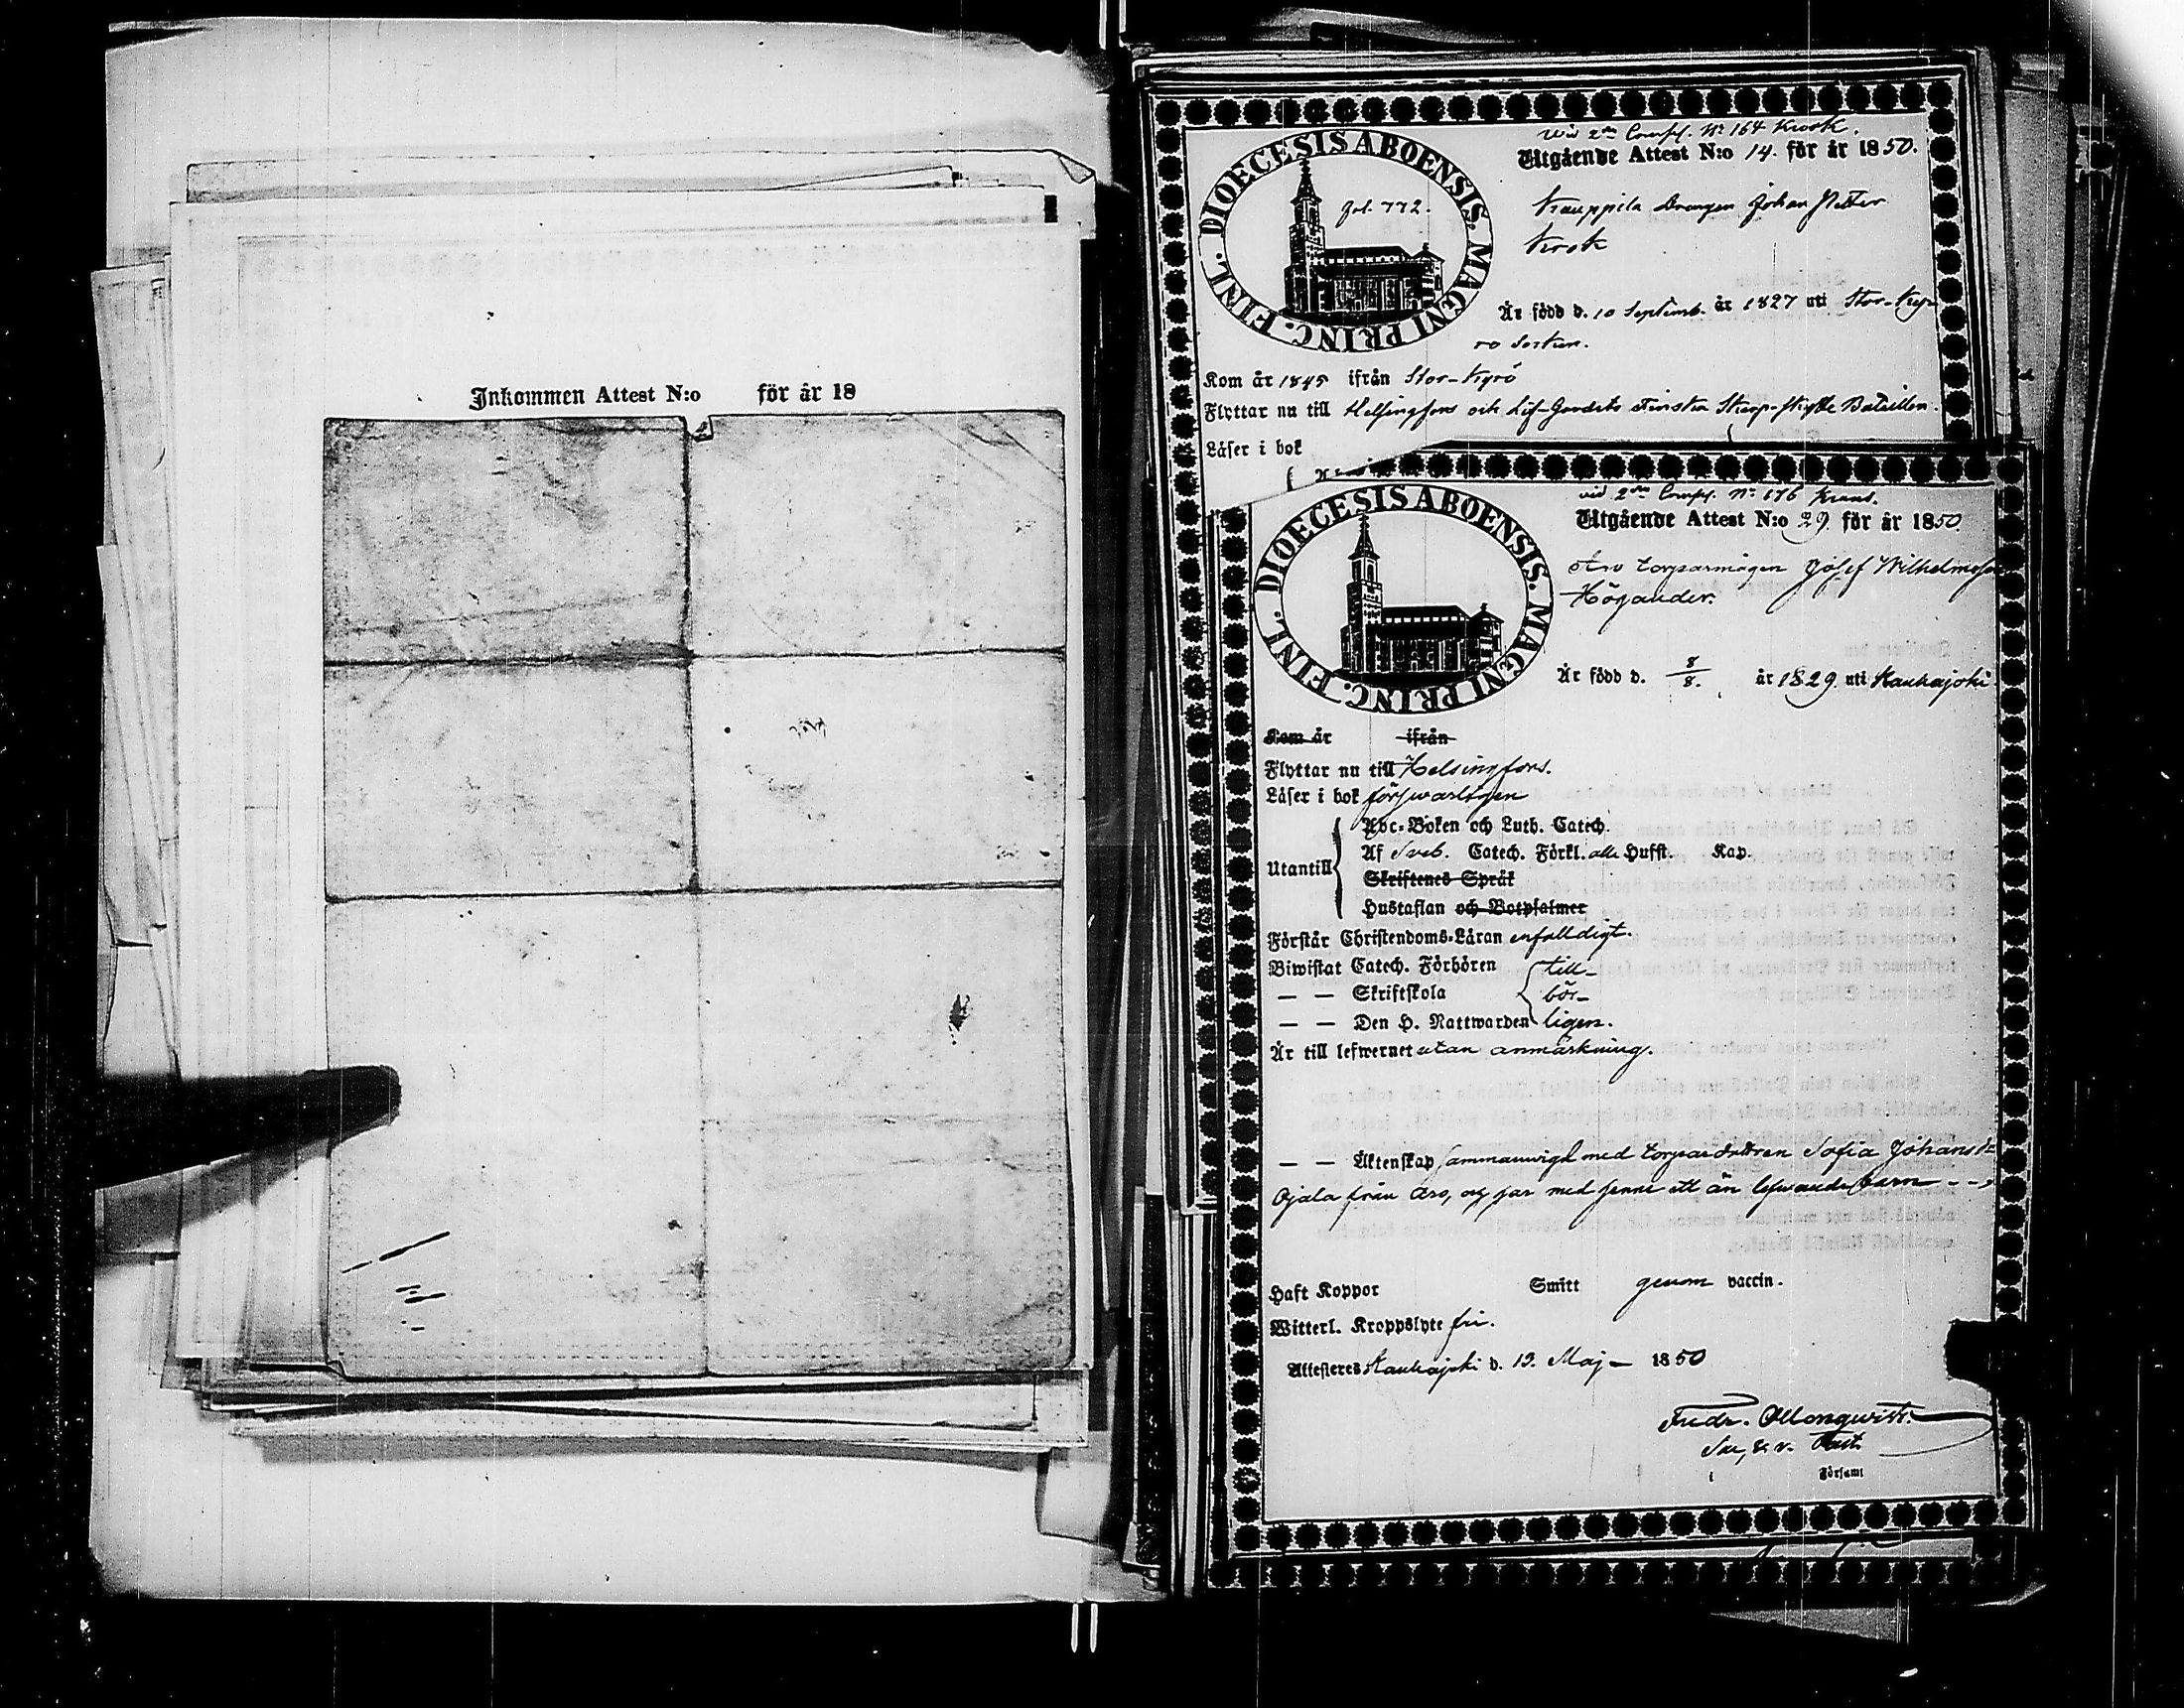 Inkommen Attest N:o för år 18
wid 2dra Comp. No 164 Krook.
Utgående Attest N:o 14. för år 1850.
DIOECESIS ABOENSIS. MAGNI PRINC. FINL.
Fol. 772.
Kauppila Drengen Johan Petter
Krok
Är född d. 10 Septemb. år 1827 uti Stor-Kyr-
ro Socken.
Kom år 1845 ifrån Stor-Kyrö
Flyttar nu till Helsingfors och Lif-Gardets Finska Skarp-skytte Bataillon.
Läser i bok
vid 2dra Comp. No 176 Krans.
Utgående Attest N:o 29. för år 1850
DIOECESIS ABOENSIS. MAGNI PRINC. FINL.
Aro torparmågen Josef Wilhelmsson
Högander.
Är född d. 8/8. år 1829. uti Kauhajoki.
Kom år ifrån
Flyttar nu till Helsingfors.
Läser i bok förswarligen
Utantill
Abc-Boken och Luth. Catech.
Af Sveb. Catech. Förkl. alla Hufst. Kap.
Skriftenes Språk
Hustaflan och Botpsalmer
Förstår Christendoms-Läran enfalldigt.
Biwistat Catech. Förhören till-
— — Skriftskola bör-
— — Den H. Nattwarden ligen.
Är till lefwernet utan anmärkning.
— — Äktenskap sammanvigd med torparedottren Sofia Johansd:r
Ojala från Aro, och har med henne ett än lefwande barn - -
Haft Koppor Smitt genom vaccin.
Witterl. Kroppslyte fri.
Attesteres Kauhajoki d. 13. Maj — 1850
Fredr.
i Församl